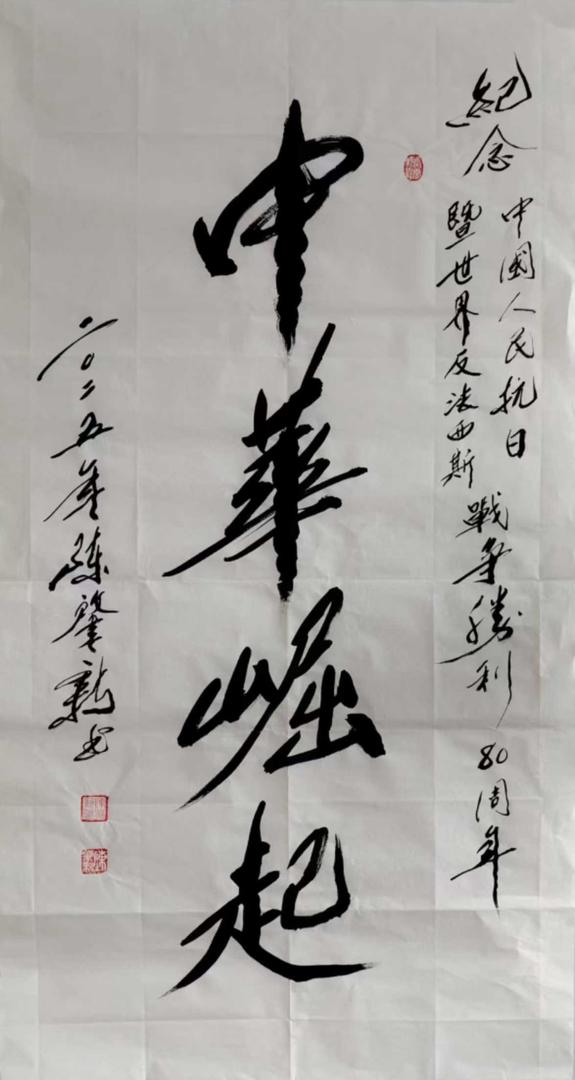 紀念
中國人民抗日
暨世界反法西斯
戰爭勝利
80周年
中華崛起
二〇二五年陈肇龍书